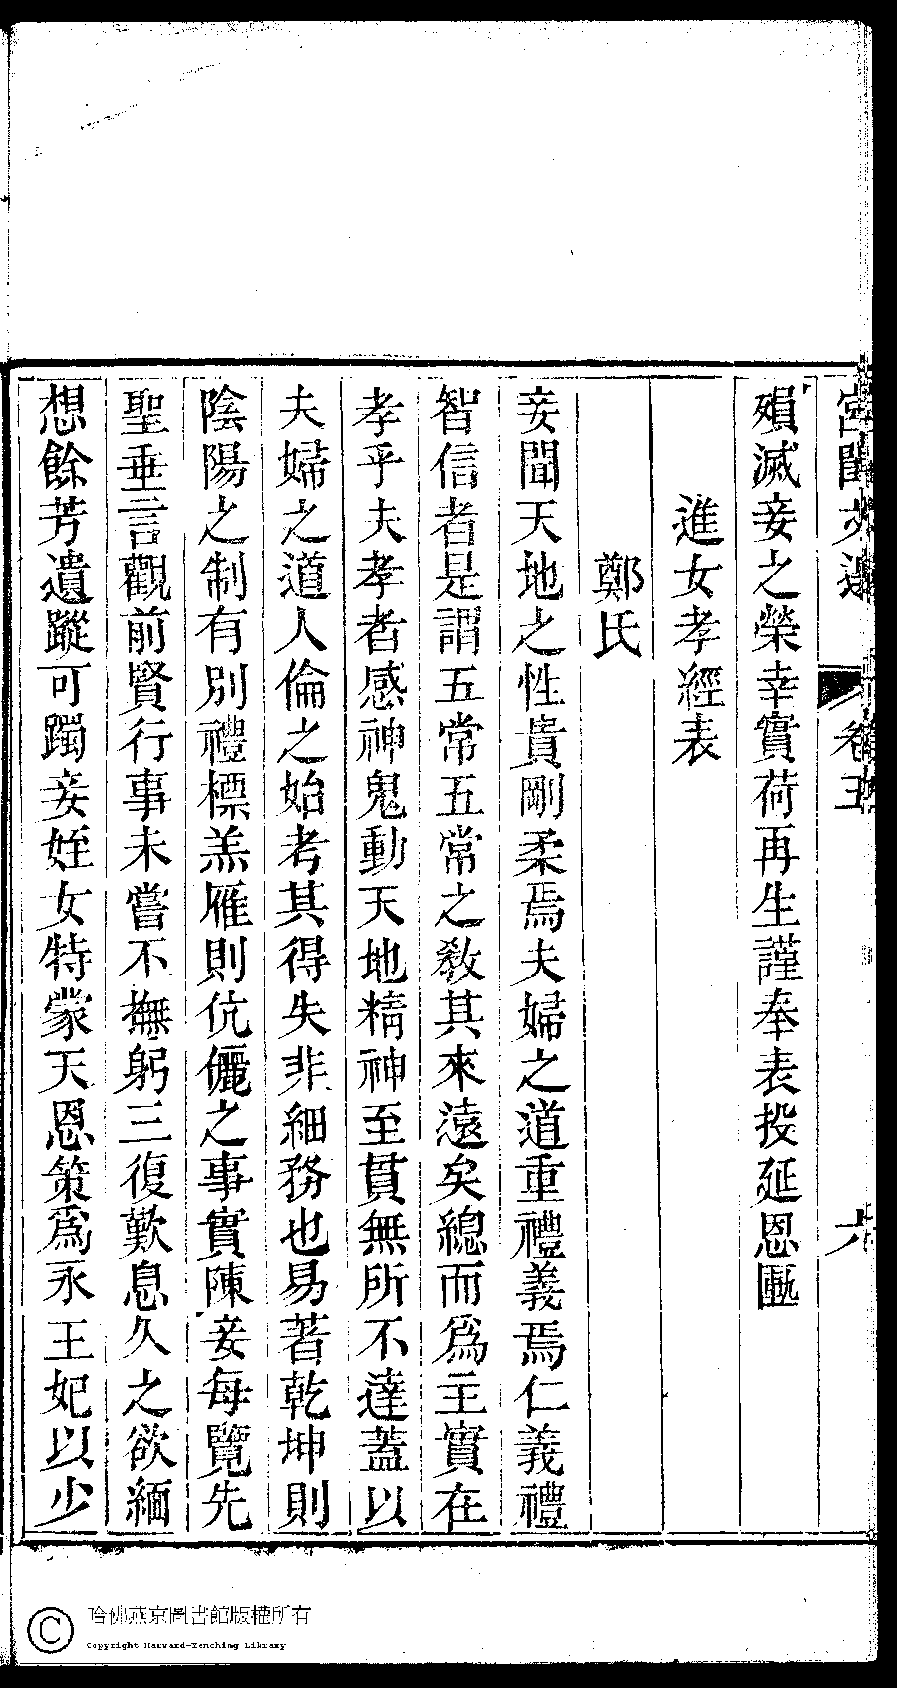 宮閨文選 卷五 六
殞滅妾之榮幸實荷再生謹奉表投延恩匭
進女孝經表
鄭氏
妾聞天地之性貴剛柔焉夫婦之道重禮義焉仁義禮
智信者是謂五常五常之教其來遠矣總而為主實在
孝乎夫孝者感神鬼動天地精神至貫無所不達蓋以
夫婦之道人倫之始考其得失非細務也易著乾坤則
陰陽之制有別禮標羔雁則伉儷之事實陳妾每覽先
聖垂言觀前賢行事未嘗不撫躬三復歎息久之欲緬
想餘芳遺蹤可躅妾姪女特蒙天恩策為永王妃以少
哈佛燕京圖書館版權所有
Copyright Harvard-Yenching Library